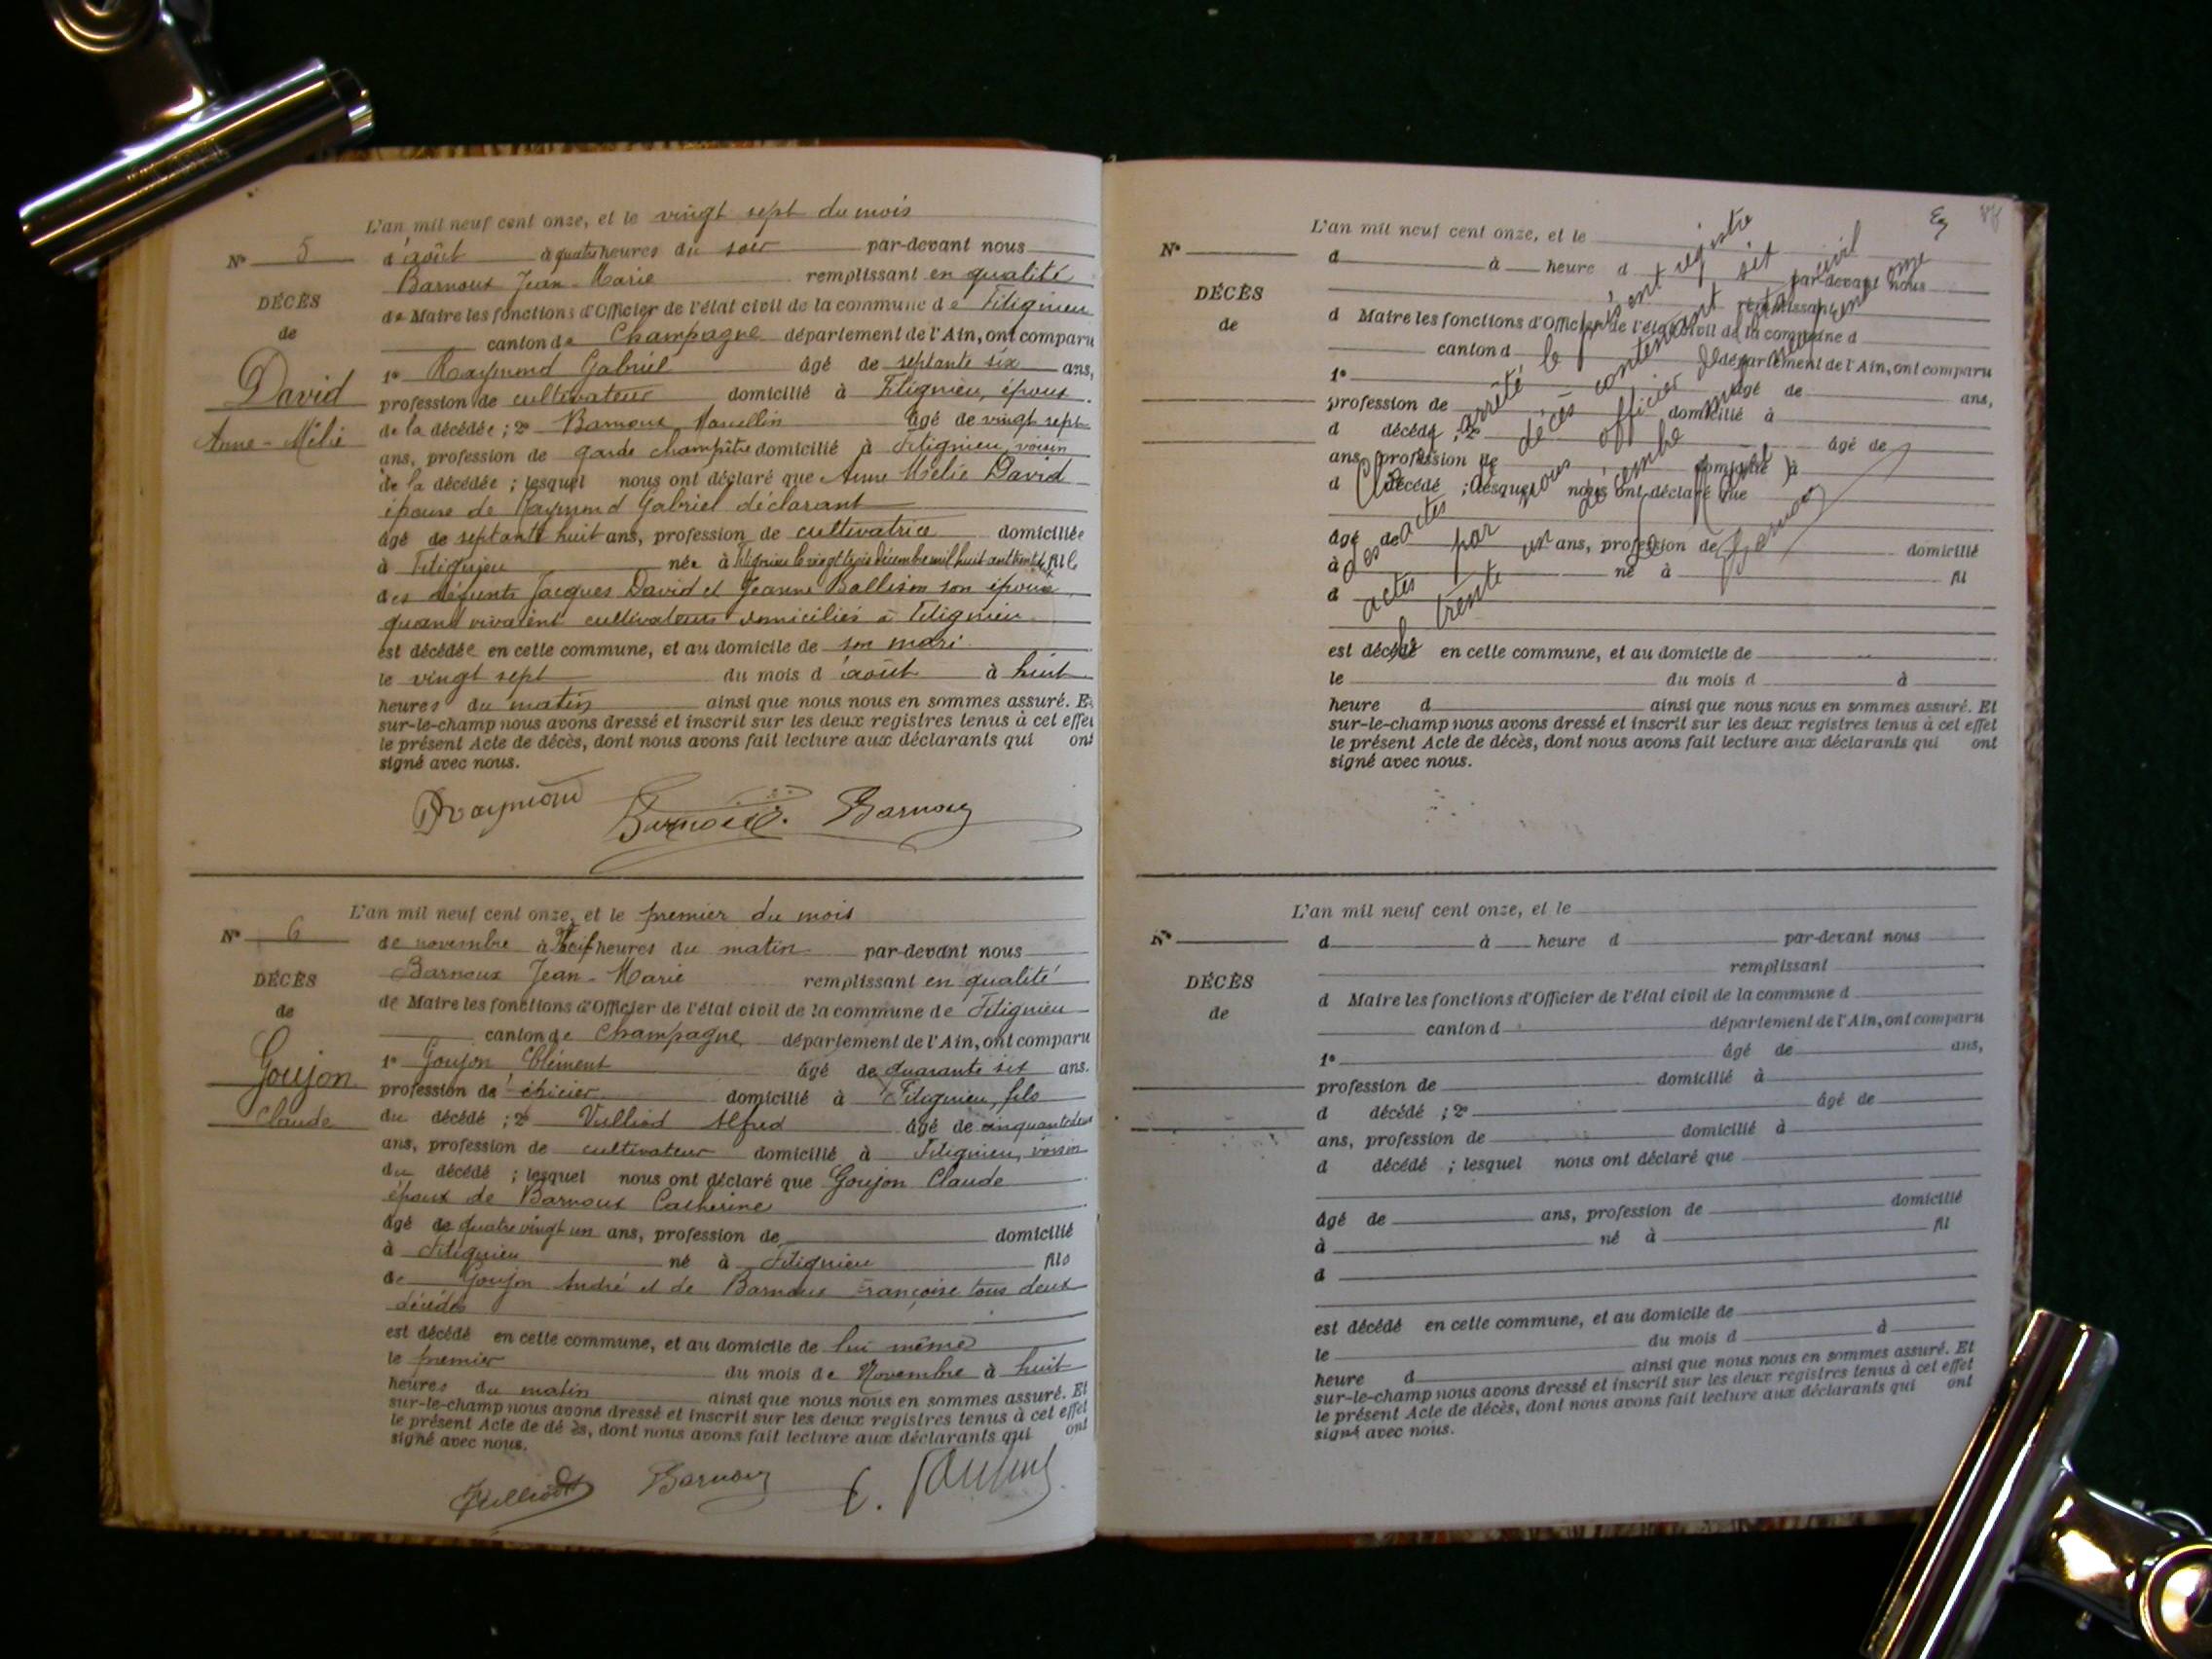 L'an mil neuf cent onze, et le vingt sept du mois
N° 5
d'août à quatre heures du soir par-devant nous
Barnoux Jean-Marie remplissant en qualité
DÉCÈS
de Maire les fonctions d'Officier de l'état civil de la commune de Fitignieu
de
canton de Champagne département de l'Ain, ont comparu
1° Raymond Gabriel âgé de septante six ans,
David
profession de cultivateur domicilié à Fitignieu, époux
Anne-Mélie
de la décédée ; 2° Barnoux Marcellin âgé de vingt sept
ans, profession de garde champêtre domicilié à Fitignieu, voisin
de la décédée ; lesquel nous ont déclaré que Anne Mélie David
épouse de Raymond Gabriel déclarant
âgé de septante huit ans, profession de cultivatrice domiciliée
à Fitignieu née à Fitignieu le vingt trois décembre mil huit cent trente fille
des défunts Jacques David et Jeanne son épouse
quand vivaient cultivateurs domiciliés à Fitignieu
est décédée en cette commune, et au domicile de son mari
le vingt sept du mois d'août à huit
heures du matin ainsi que nous nous en sommes assuré. Et
sur-le-champ nous avons dressé et inscrit sur les deux registres tenus à cet effet
le présent Acte de décès, dont nous avons fait lecture aux déclarants qui ont
signé avec nous.
Raymond Barnoux Barnoux
L'an mil neuf cent onze, et le premier du mois
N° 6
de novembre à neuf heures du matin par-devant nous
Barnoux Jean-Marie remplissant en qualité
DÉCÈS
de Maire les fonctions d'Officier de l'état civil de la commune de Fitignieu
de
canton de Champagne département de l'Ain, ont comparu
1° Goujon Clément âgé de quarante six ans.
Goujon
profession de épicier domicilié à Fitignieu, fils
Claude
du décédé ; 2° Vulliod Alfred âgé de cinquante deux
ans, profession de cultivateur domicilié à Fitignieu, voisin
du décédé ; lesquel nous ont déclaré que Goujon Claude
époux de Barnoux Catherine
âgé de quatre vingt un ans, profession de domicilié
à Fitignieu né à Fitignieu fils
de Goujon André et de Barnoux Françoise tous deux
décédés
est décédé en cette commune, et au domicile de lui même
le premier du mois de Novembre à huit
heures du matin ainsi que nous nous en sommes assuré. Et
sur-le-champ nous avons dressé et inscrit sur les deux registres tenus à cet effet
le présent Acte de dé ès, dont nous avons fait lecture aux déclarants qui ont
signé avec nous.
Vulliod Barnoux C. Goujon
L'an mil neuf cent onze, et le
N°
d à heure d par-devant nous
remplissant
DÉCÈS
d Maire les fonctions d'Officier de l'état civil de la commune d
de
canton d département de l'Ain, ont comparu
1° âgé de ans,
profession de domicilié à
d décédé ; 2° âgé de
ans, profession de domicilié à
d décédé ; lesquel nous ont déclaré que
âgé de ans, profession de domicilié
à né à fil
d
est décédé en cette commune, et au domicile de
le du mois d à
heure d ainsi que nous nous en sommes assuré. Et
sur-le-champ nous avons dressé et inscrit sur les deux registres tenus à cet effet
le présent Acte de décès, dont nous avons fait lecture aux déclarants qui ont
signé avec nous.
Clos et arrêté le présent registre
des actes de décès contenant six
actes par nous officier de l'état civil
le trente un décembre mil neuf cent onze
Le Maire
Barnoux
L'an mil neuf cent onze, et le
N°
d à heure d par-devant nous
remplissant
DÉCÈS
d Maire les fonctions d'Officier de l'état civil de la commune d
de
canton d département de l'Ain, ont comparu
1° âgé de ans,
profession de domicilié à
d décédé ; 2° âgé de
ans, profession de domicilié à
d décédé ; lesquel nous ont déclaré que
âgé de ans, profession de domicilié
à né à fil
d
est décédé en cette commune, et au domicile de
le du mois d à
heure d ainsi que nous nous en sommes assuré. Et
sur-le-champ nous avons dressé et inscrit sur les deux registres tenus à cet effet
le présent Acte de décès, dont nous avons fait lecture aux déclarants qui ont
signé avec nous.